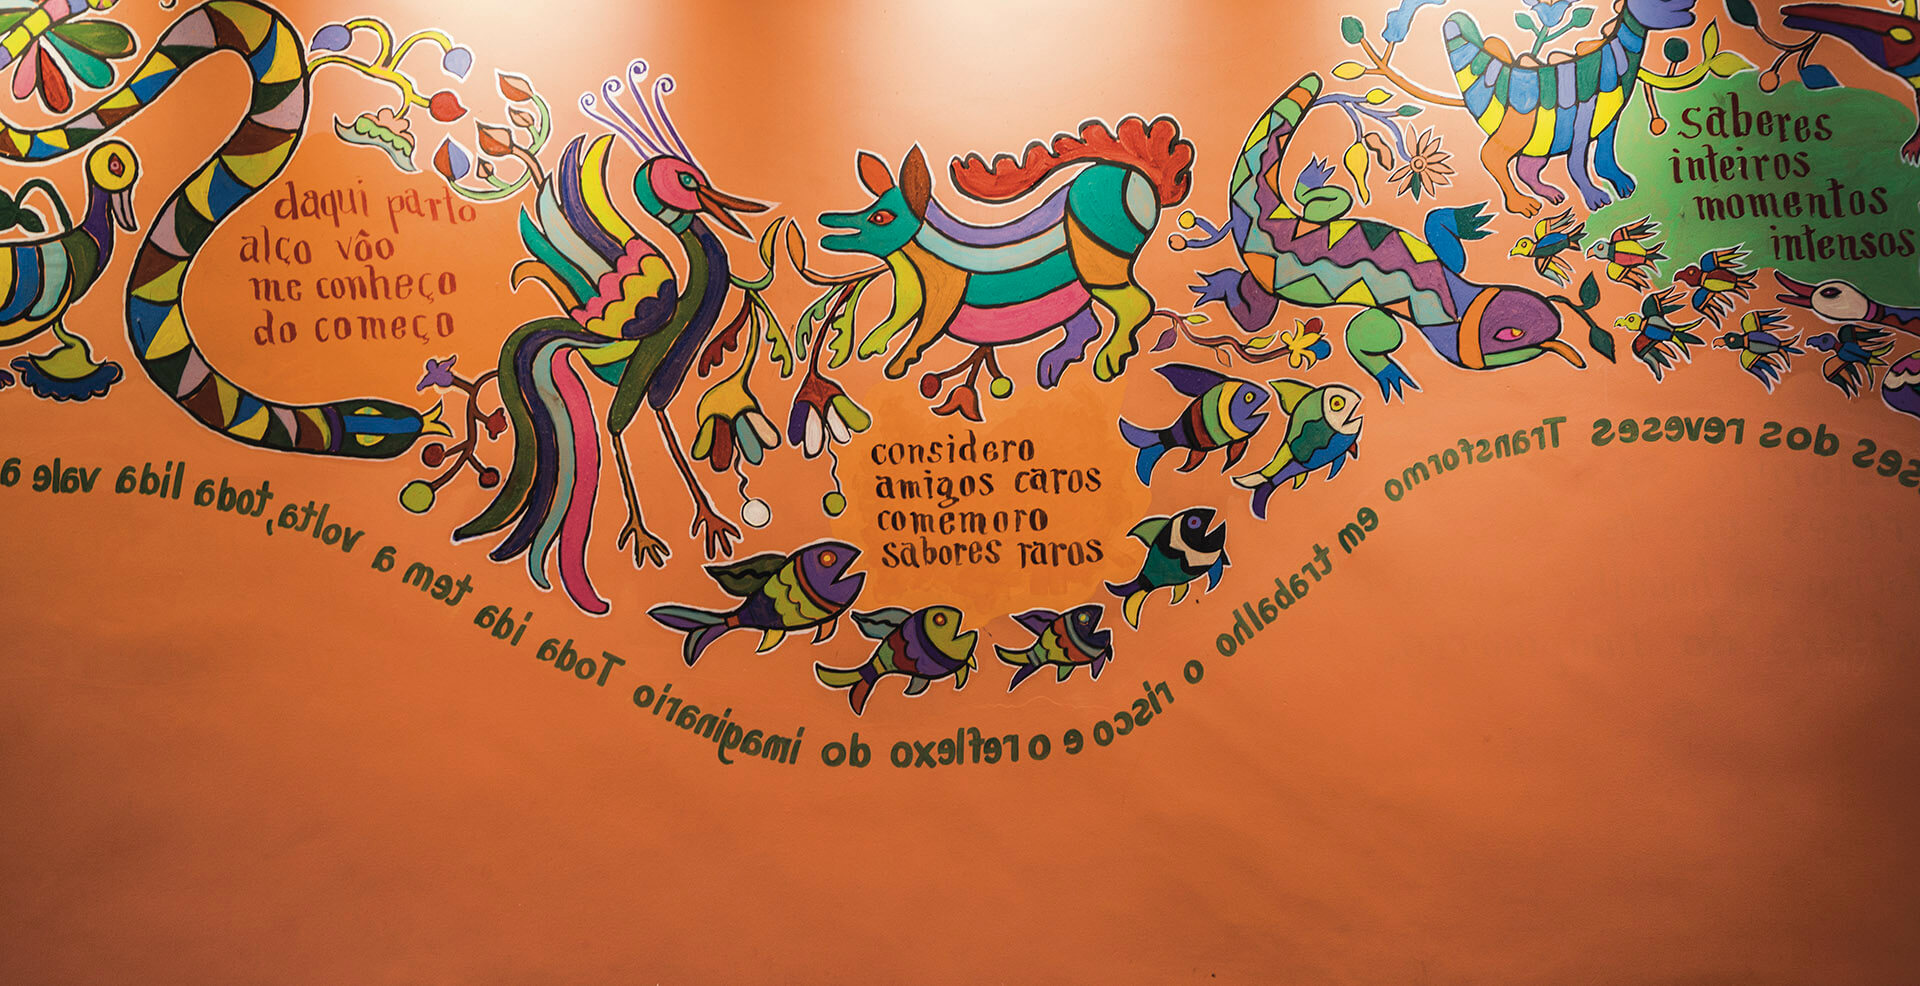 daqui parto
alço vôo
me conheço
do começo
considero
amigos caros
comemoro
sabores raros
saberes
inteiros
momentos
intensos
ses dos reveses Transformo em trabalho o risco e o reflexo do imaginario Toda ida tem a volta, toda lida vale a